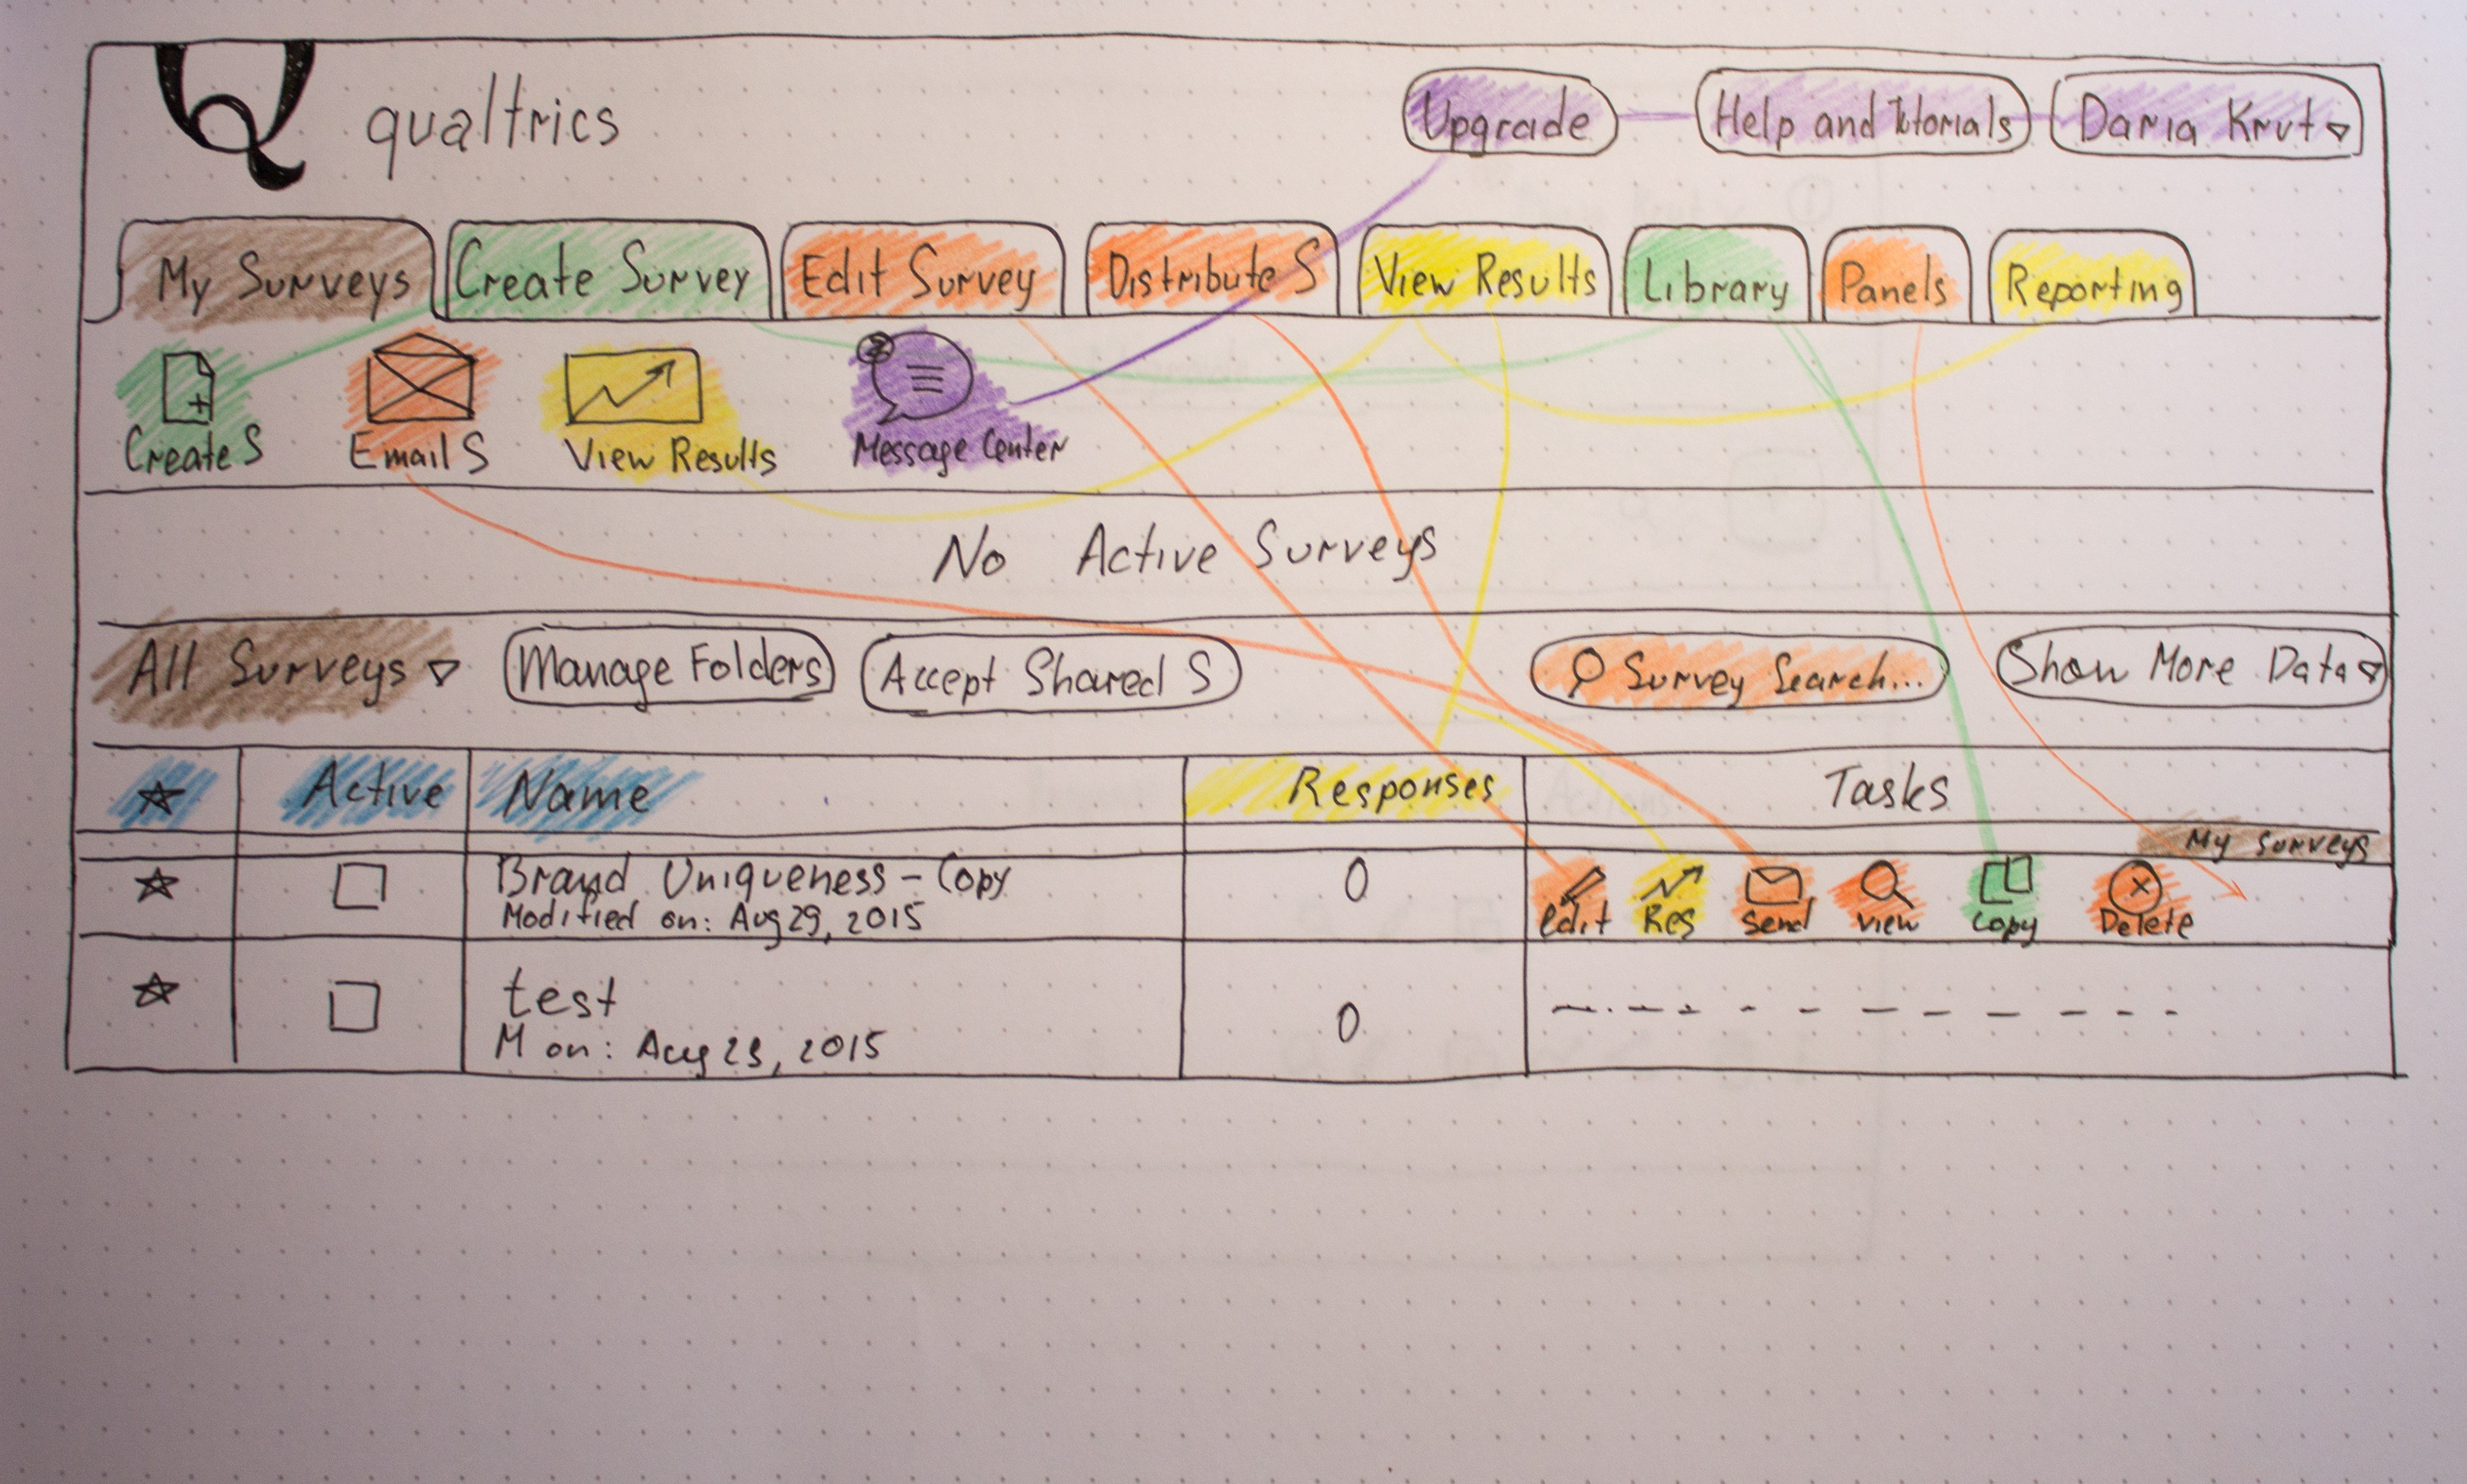 Q qualtrics Upgrade Help and Tutorials Daria Krut
My Surveys Create Survey Edit Survey Distribute S View Results Library Panels Reporting
Create S Email S View Results Message Center
No Active Surveys
All Surveys Manage Folders Accept Shared S Survey Search... Show More Data
Active Name Responses Tasks
My surveys
Brand Uniqueness - Copy 0
Modified on: Aug 29, 2015 edit Res Send view Copy Delete
test 0
M on: Aug 23, 2015